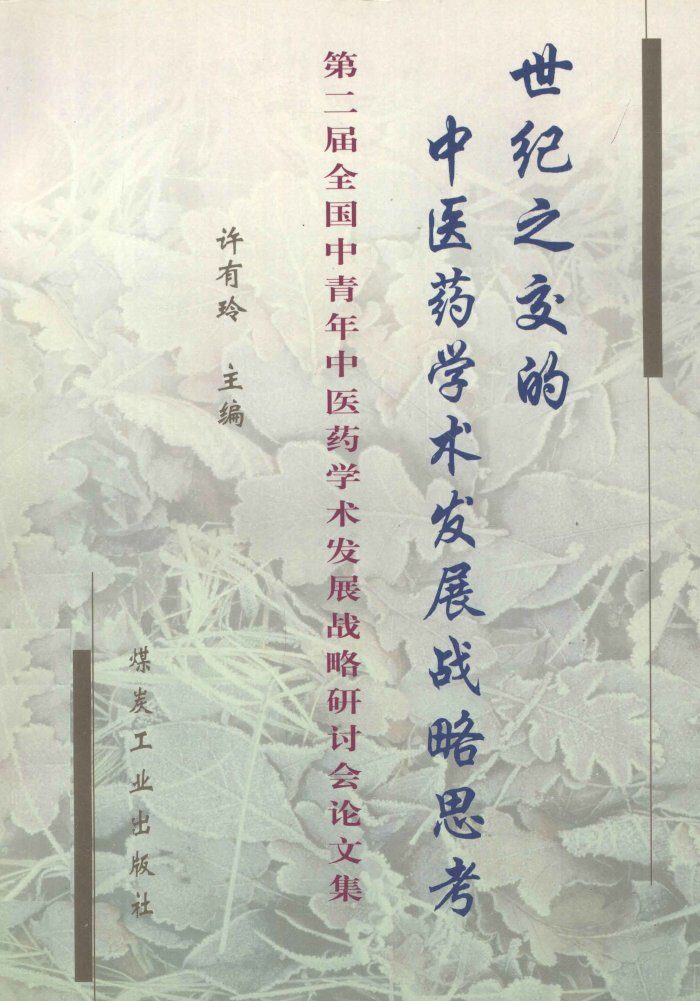 世纪之交的
中医药学术发展战略思考
第二届全国中青年中医药学术发展战略研讨会论文集
许有玲 主编
煤炭工业出版社